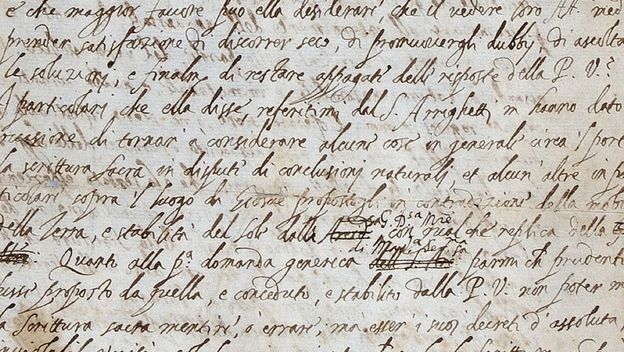 E che maggior favore può ella desiderare, che il vedere loro AA. me
prender satisfazione di discorrer seco, di promuovergli dubbÿ, di ascolta
le soluzioni, e finalm.e di restare appagati delle risposte della P. V.?
I particolari che ella disse, referitimi dal S. Arrighetti, m hanno dato
occasione di tornar' a considerare alcune cose in generale circa 'l port
la scrittura sacra in dispute di conclusioni naturali, et alcun' altre in p
ticolare sopra 'l luogo di Giosuè propostogli in contradizione della mob
della Terra, e stabilità del Sole dalla G. D.sa M.re con qualche replica della
di M.a Ser.ma
Quanto alla p.a domanda generica parmi ch prudente
fusse proposto da quella, e conceduto, e stabilito dalla P. V. non poter m
la scrittura sacra mentire, o errare, ma esser' i suoi decreti d'assoluta,